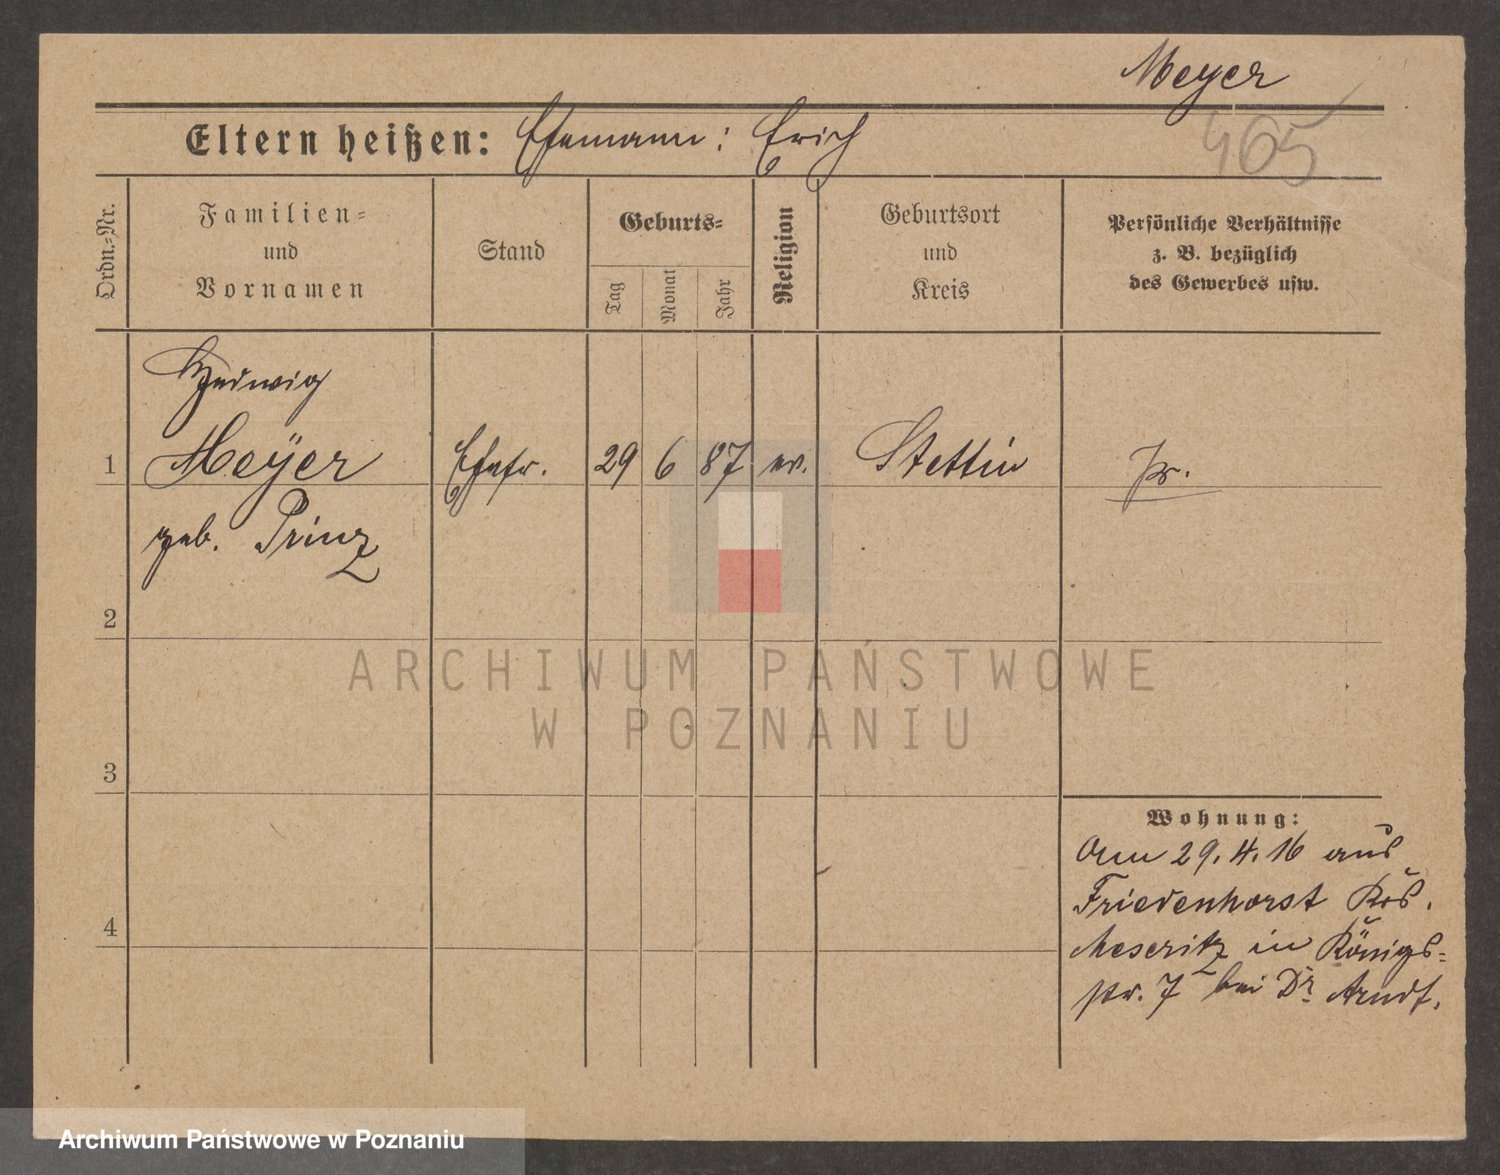 Meyer
465
Eltern heißen: Ehemann: Erich
Ordn.-Nr.
Familien-
und
Vornamen
Stand
Geburts-
Tag
Monat
Jahr
Religion
Geburtsort
und
Kreis
Persönliche Verhältnisse
z. B. bezüglich
des Gewerbes usw.
Hedwig
1 Meÿer Ehefr. 29 6 87 ev. Stettin pr.
geb. Prinz
2
ARCHIWUM PAŃSTWOWE
W POZNANIU
3
Wohnung:
Am 29.4.16 aus
Friedenhorst Krs.
4
Meseritz in Königs-
str. 7 bei Dr. Arndt.
Archiwum Państwowe w Poznaniu